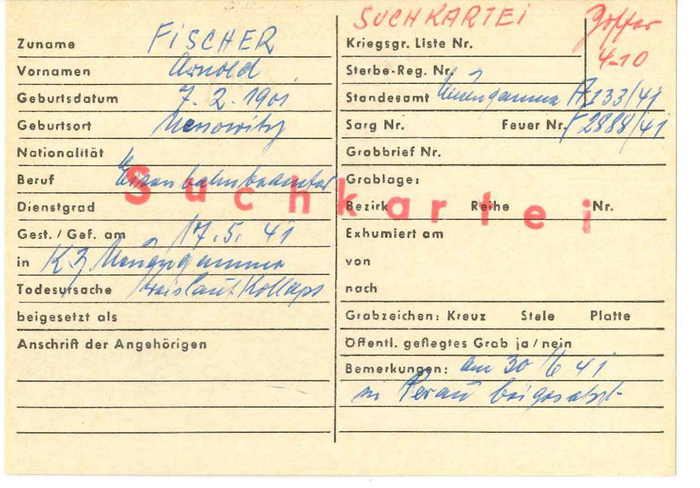 SUCHKARTEI
4-10
Zuname FISCHER
Vornamen Arnold
Geburtsdatum 7.2.1901
Geburtsort
Nationalität
Beruf Eisenbahnbeamter
Dienstgrad
Gest. / Gef. am 17.5.41
in KZ Neuengamme
Todesursache Kreislauf Kollaps
beigesetzt als
Anschrift der Angehörigen
Suchkartei
Kriegsgr. Liste Nr.
Sterbe-Reg. Nr.
Standesamt Neuengamme A 133/41
Sarg Nr. Feuer Nr. F 2888/41
Grabbrief Nr.
Grablage:
Bezirk Reihe Nr.
Exhumiert am
von
nach
Grabzeichen: Kreuz Stele Platte
Öffentl. gepflegtes Grab ja / nein
Bemerkungen: am 30/6 41
in beigesetzt